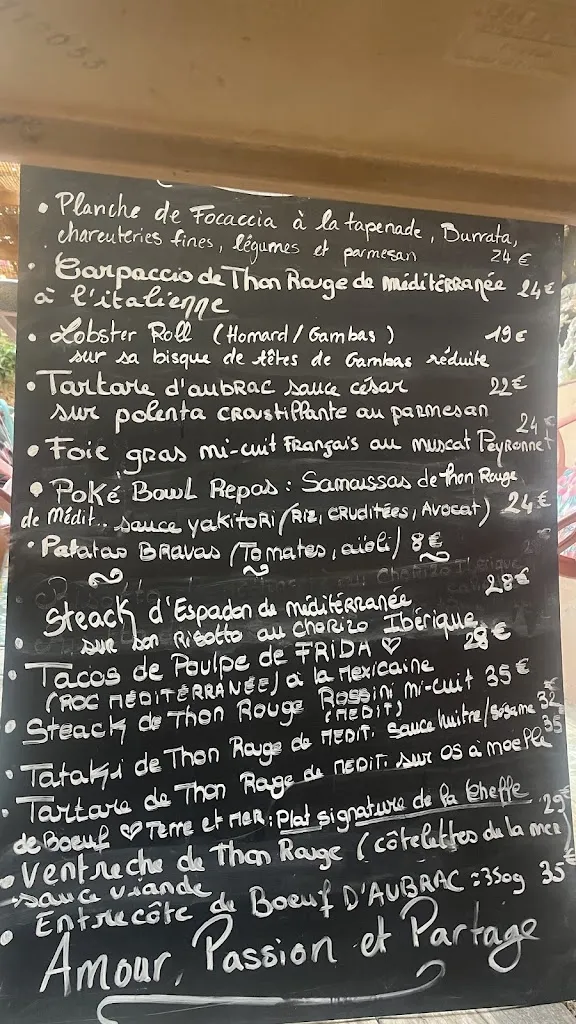 • Planche de Focaccia à la tapenade, Burrata,
charcuteries fines, légumes et parmesan 24 €
• Carpaccio de Thon Rouge de méditérranée 24€
à l'italienne
• Lobster Roll (Homard / Gambas) 19€
sur sa bisque de têtes de Gambas réduite
• Tartare d'aubrac sauce césar 22€
sur polenta croustillante au parmesan
24€
• Foie gras mi-cuit Français au muscat Peyronnet
• Poké Bowl Repas : Samoussas de thon Rouge
de Médit.. sauce yakitori (Riz, crudités, Avocat) 24€
• Patatas Bravas (Tomates, aïoli) 8€
28€
• Steack d'Espadon de méditérranée
sur son Risotto au chorizo Ibérique
• Tacos de Poulpe de FRIDA ♡ 28€
(ROC MÉDITÉRRANÉE) à la Mexicaine
• Steack de Thon Rouge Rossini mi-cuit 35€
(MEDIT)
• Tataki de Thon Rouge de MEDIT. sauce huitre/sésame 32
• Tartare de Thon Rouge de MEDIT. sur os à moelle 35
de Boeuf ♡ Terre et Mer : Plat signature de la Cheffe
• Ventreche de Thon Rouge (côtelettes de la mer) 29€
sauce viande
• Entrecôte de Boeuf D'AUBRAC : 350g 35€
Amour, Passion et Partage